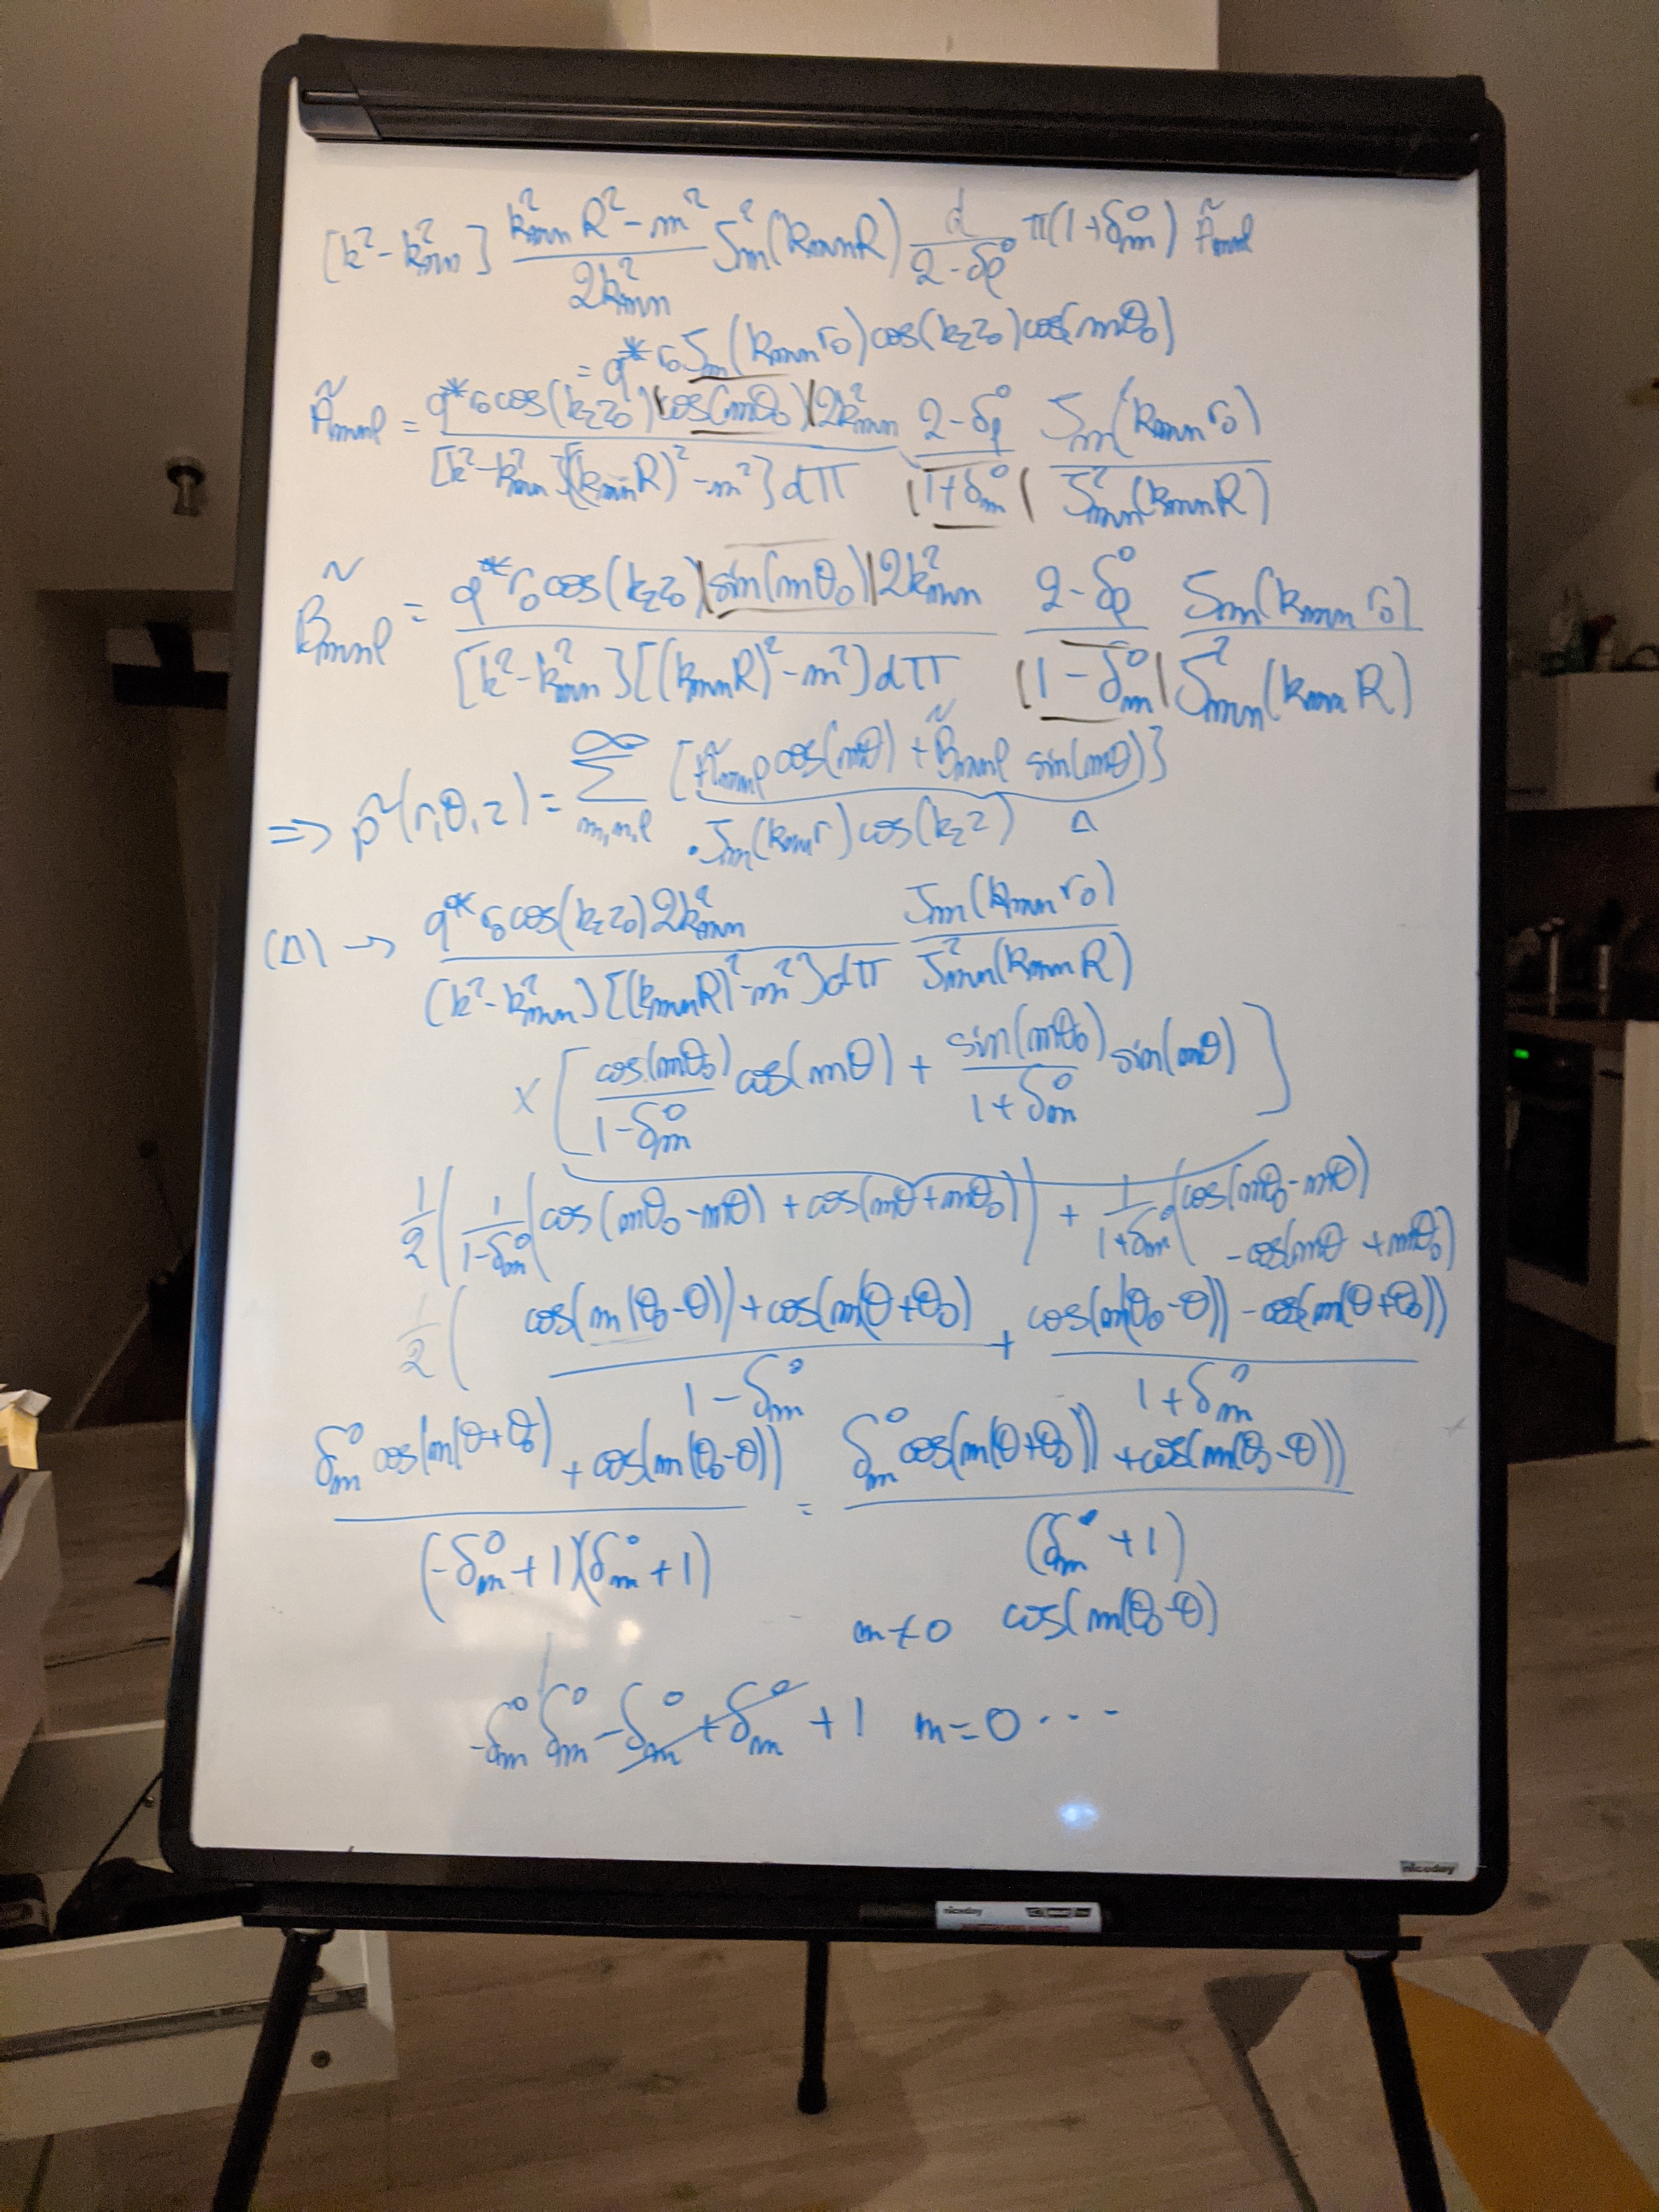 [k²-k²mn] (k²mn R² - m²)/(2k²mn) J²m(kmnR) d/(2-δℓ⁰) π(1+δm⁰) Ãmnℓ
= q* r₀ Jm(kmn r₀) cos(kz z₀) cos(mθ₀)
Ãmnℓ = (q* r₀ cos(kz z₀) (cos(mθ₀)) 2k²mn)/([k²-k²mn][(kmnR)²-m²] dπ) (2-δℓ⁰)/(1+δm⁰) Jm(kmn r₀)/J²mn(kmnR)
B̃mnℓ = (q* r₀ cos(kz z₀) |sin(mθ₀)| 2k²mn)/([k²-k²mn][(kmnR)²-m²) dπ) (2-δℓ⁰)/(|1-δm⁰|) Jm(kmn r₀)/J²mn(kmnR)
=> p̃(r,θ,z) = Σ∞ m,n,ℓ [Ãmnℓ cos(mθ) + B̃mnℓ sin(mθ)]
· Jm(kmn r) cos(kz z) Δ
(Δ) → (q* r₀ cos(kz z₀) 2k²mn)/((k²-k²mn)[(kmnR)²-m²] dπ) Jm(kmn r₀)/J²mn(kmnR)
× [cos(mθ₀)/(1-δm⁰) cos(mθ) + sin(mθ₀)/(1+δm⁰) sin(mθ)]
1/2 (1/(1-δm⁰) (cos(mθ₀-mθ) + cos(mθ+mθ₀)) + 1/(1+δm⁰) (cos(mθ₀-mθ) - cos(mθ+mθ₀)
1/2 ( (cos(m(θ₀-θ)) + cos(m(θ+θ₀))/(1-δm⁰) + (cos(m(θ₀-θ)) - cos(m(θ+θ₀)))/(1+δm⁰)
(δm⁰ cos(m(θ+θ₀) + cos(m(θ₀-θ)))/((-δm⁰+1)(δm⁰+1)) = (δm⁰ cos(m(θ+θ₀)) + cos(m(θ₀-θ)))/((δm⁰+1))
m≠0 cos(m(θ₀-θ)
-δm⁰ δm⁰ - δm⁰ + δm⁰ + 1 m=0 ...
niceday
niceday